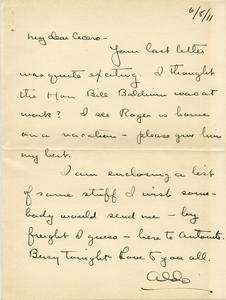 6/8/11
My dear Cicero -
Your last letter
was quite exciting. I thought
the Hon Bill Baldwin was at
work? I see Roger is home
on a vacation - please give him
my best.
I am enclosing a list
of some stuff I wish some-
body would send me - by
freight I guess - here to Antonito.
Busy tonight Love to you all.
Aldo